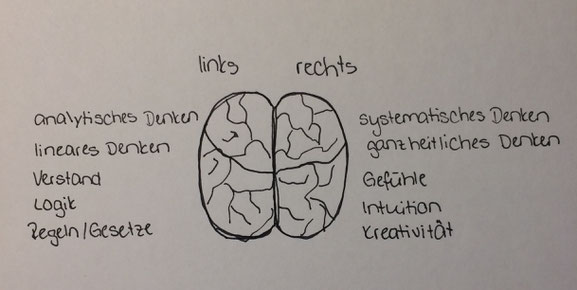 links rechts
analytisches Denken
lineares Denken
Verstand
Logik
Regeln/Gesetze
systematisches Denken
ganzheitliches Denken
Gefühle
Intuition
Kreativität